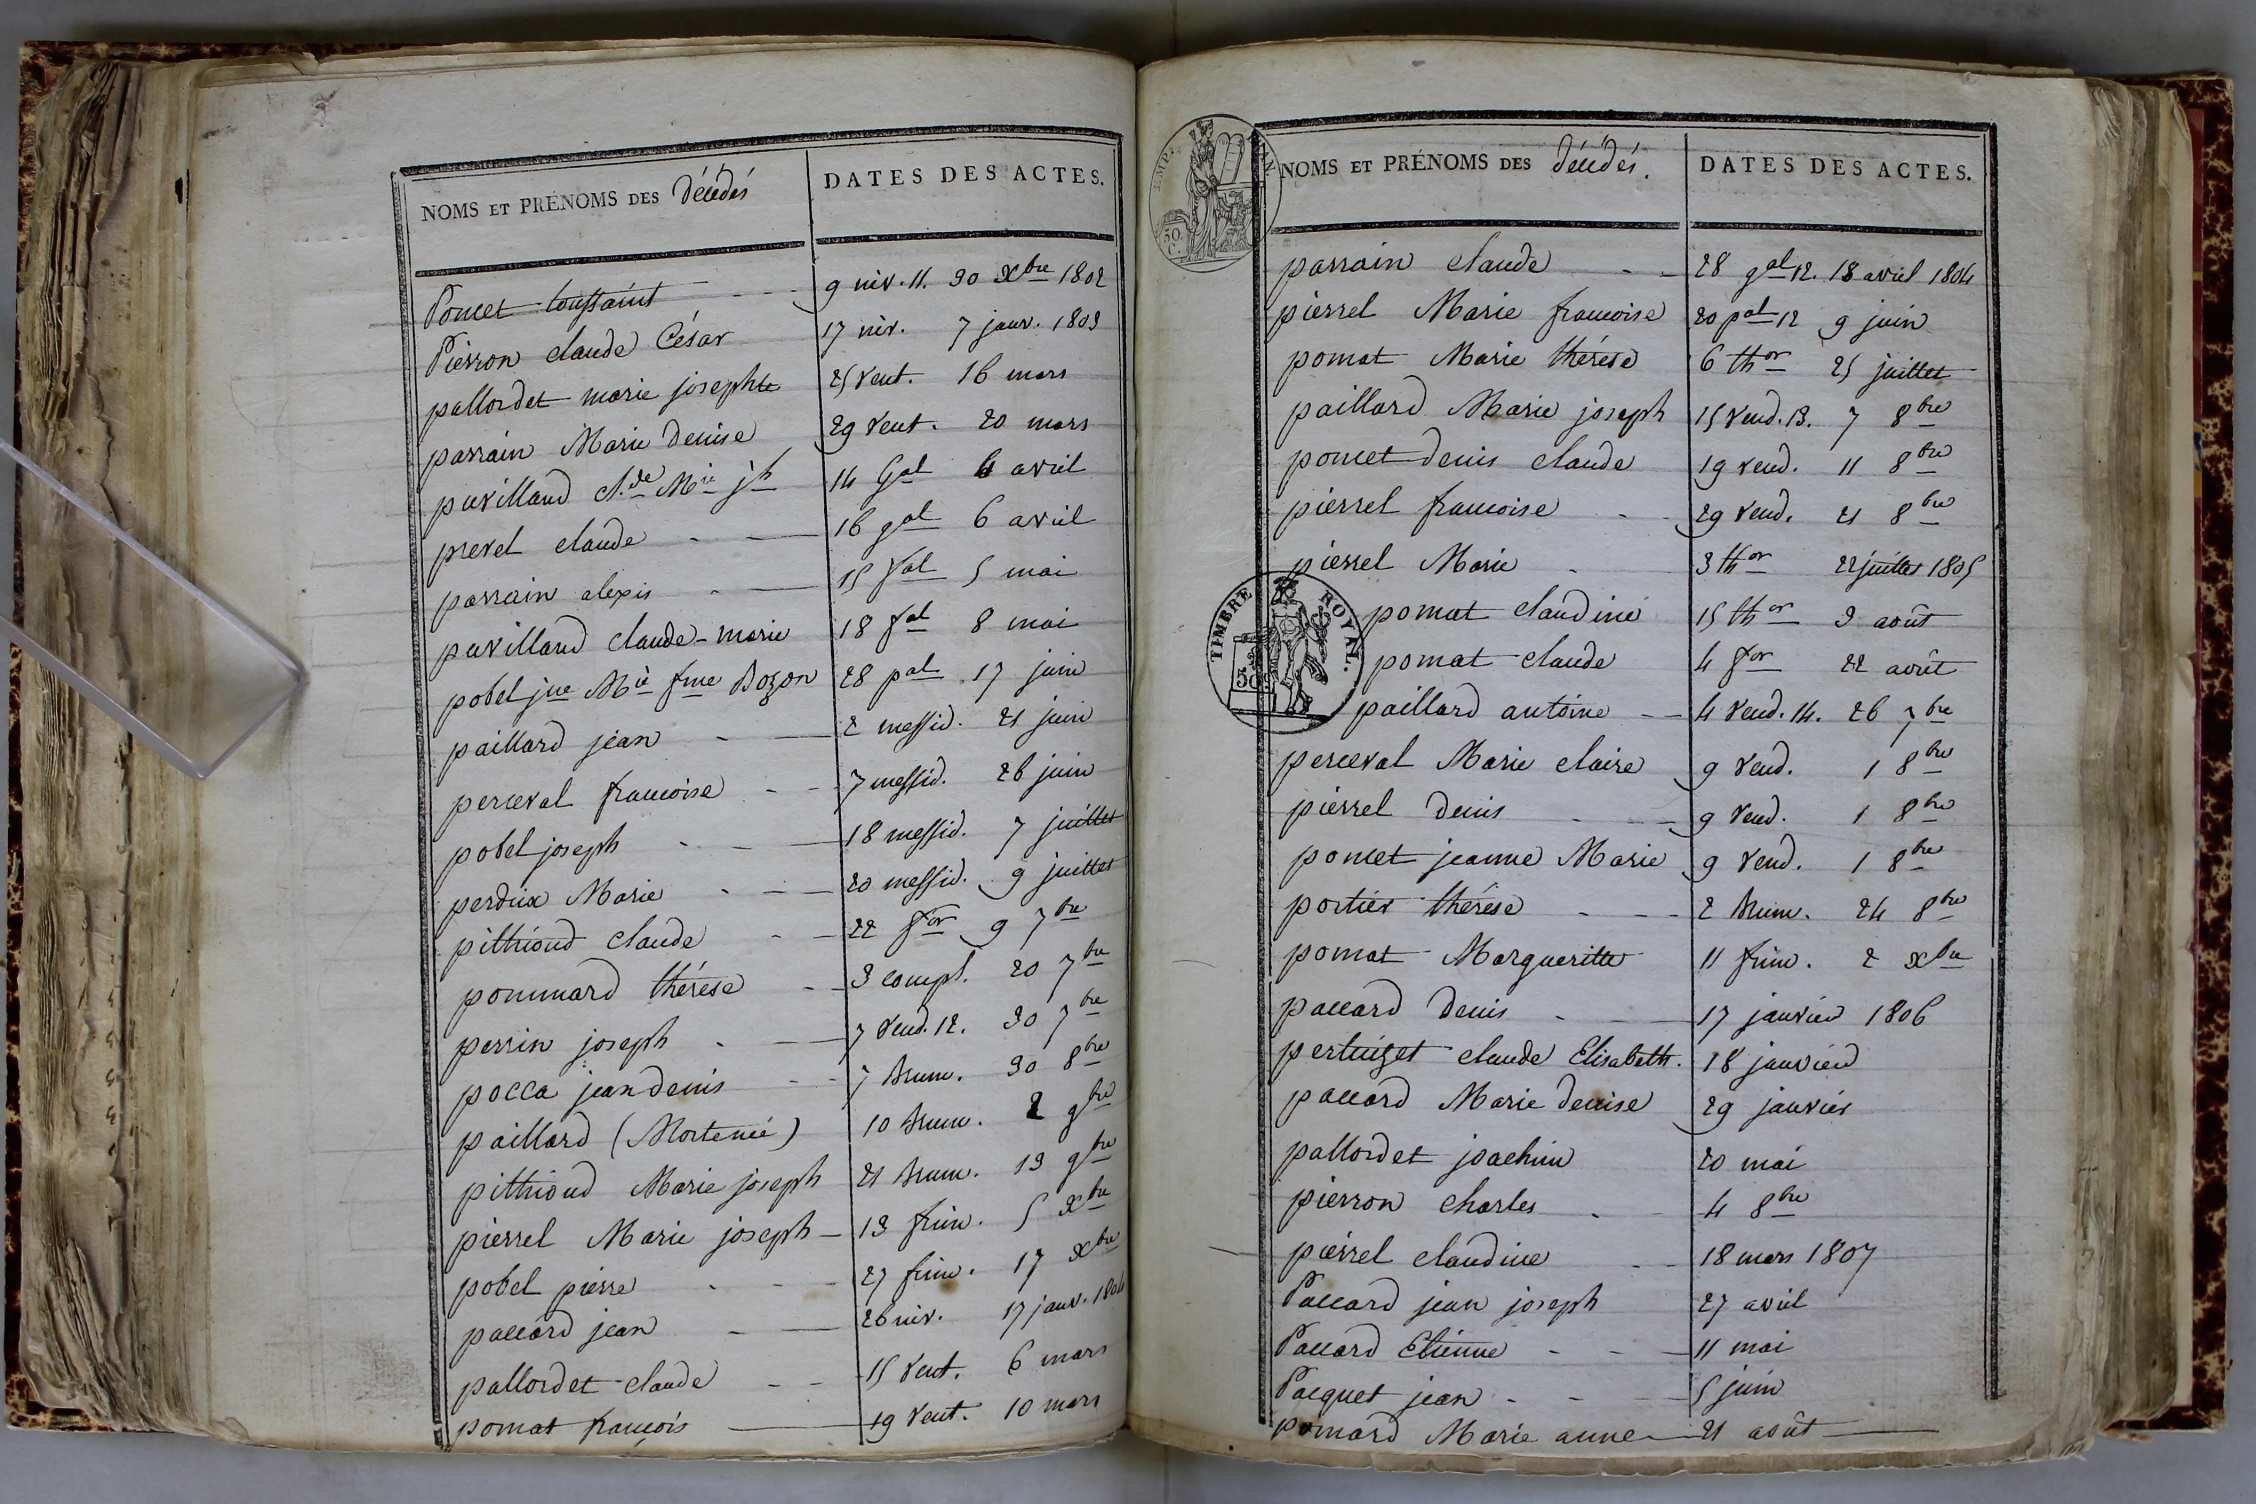 NOMS ET PRÉNOMS DES Décédés
DATES DES ACTES.
Poncet toussaint 9 niv. 11. 30 Xbre 1802
Pierron claude César 17 niv. 7 janv. 1803
pallordet marie josephte 25 vent. 16 mars
parrain Marie Denise 29 vent. 20 mars
pavilland cl.de Mie jh 14 Gal 4 avril
prevel claude 16 gal 6 avril
parrain alexis 15 fal 5 mai
pavilland claude-marie 18 fal 8 mai
pobel jne Mie fme Bozon 28 pal 17 juin
paillard jean 2 messid. 21 juin
perceval francoise 7 messid. 26 juin
pobel joseph 18 messid. 7 juillet
perdrix Marie 20 messid. 9 juillet
pithioud claude 22 for 9 7bre
pommard thérèse 3 compl. 20 7bre
perrin joseph 7 vend. 12. 30 7bre
pocca jean denis 7 brum. 30 8bre
paillard (Mortené) 10 brum. 2 9bre
pithioud Marie joseph 21 brum. 13 9bre
pierrel Marie joseph 13 frim. 5 Xbre
pobel pierre 27 frim. 17 Xbre
paccard jean 26 niv. 17 janv. 1804
pallordet claude 15 vent. 6 mars
pomat françois 19 vent. 10 mars
EMP.
50 C.
NOMS ET PRÉNOMS DES décédés.
DATES DES ACTES.
parrain claude 28 gal 12. 18 avril 1804
pierrel Marie francoise 20 pal 12 9 juin
pomat Marie thérèse 6 thor 25 juillet
paillard Marie joseph 15 vend. 13. 7 8bre
poncet denis claude 19 vend. 11 8bre
pierrel francoise 29 vend. 21 8bre
pierrel Marie 3 thor 22 juillet 1805
TIMBRE ROYAL.
50
pomat claudine 15 thor 3 août
pomat claude 4 for 22 août
paillard antoine 4 vend. 14. 26 7bre
perceval Marie claire 9 vend. 1 8bre
pierrel denis 9 vend. 1 8bre
poncet jeanne Marie 9 vend. 1 8bre
portier thérèse 2 brum. 24 8bre
pomat Margueritte 11 frim. 2 Xbre
paccard Denis 17 janvier 1806
pertuizet claude Elisabeth. 18 janvier
paccard Marie denise 29 janvier
pallordet joachim 20 mai
pierron charles 4 8bre
pierrel claudine 18 mars 1807
Paccard jean joseph 27 avril
Paccard Etienne 11 mai
Pacquet jean 5 juin
pomard Marie anne 21 août